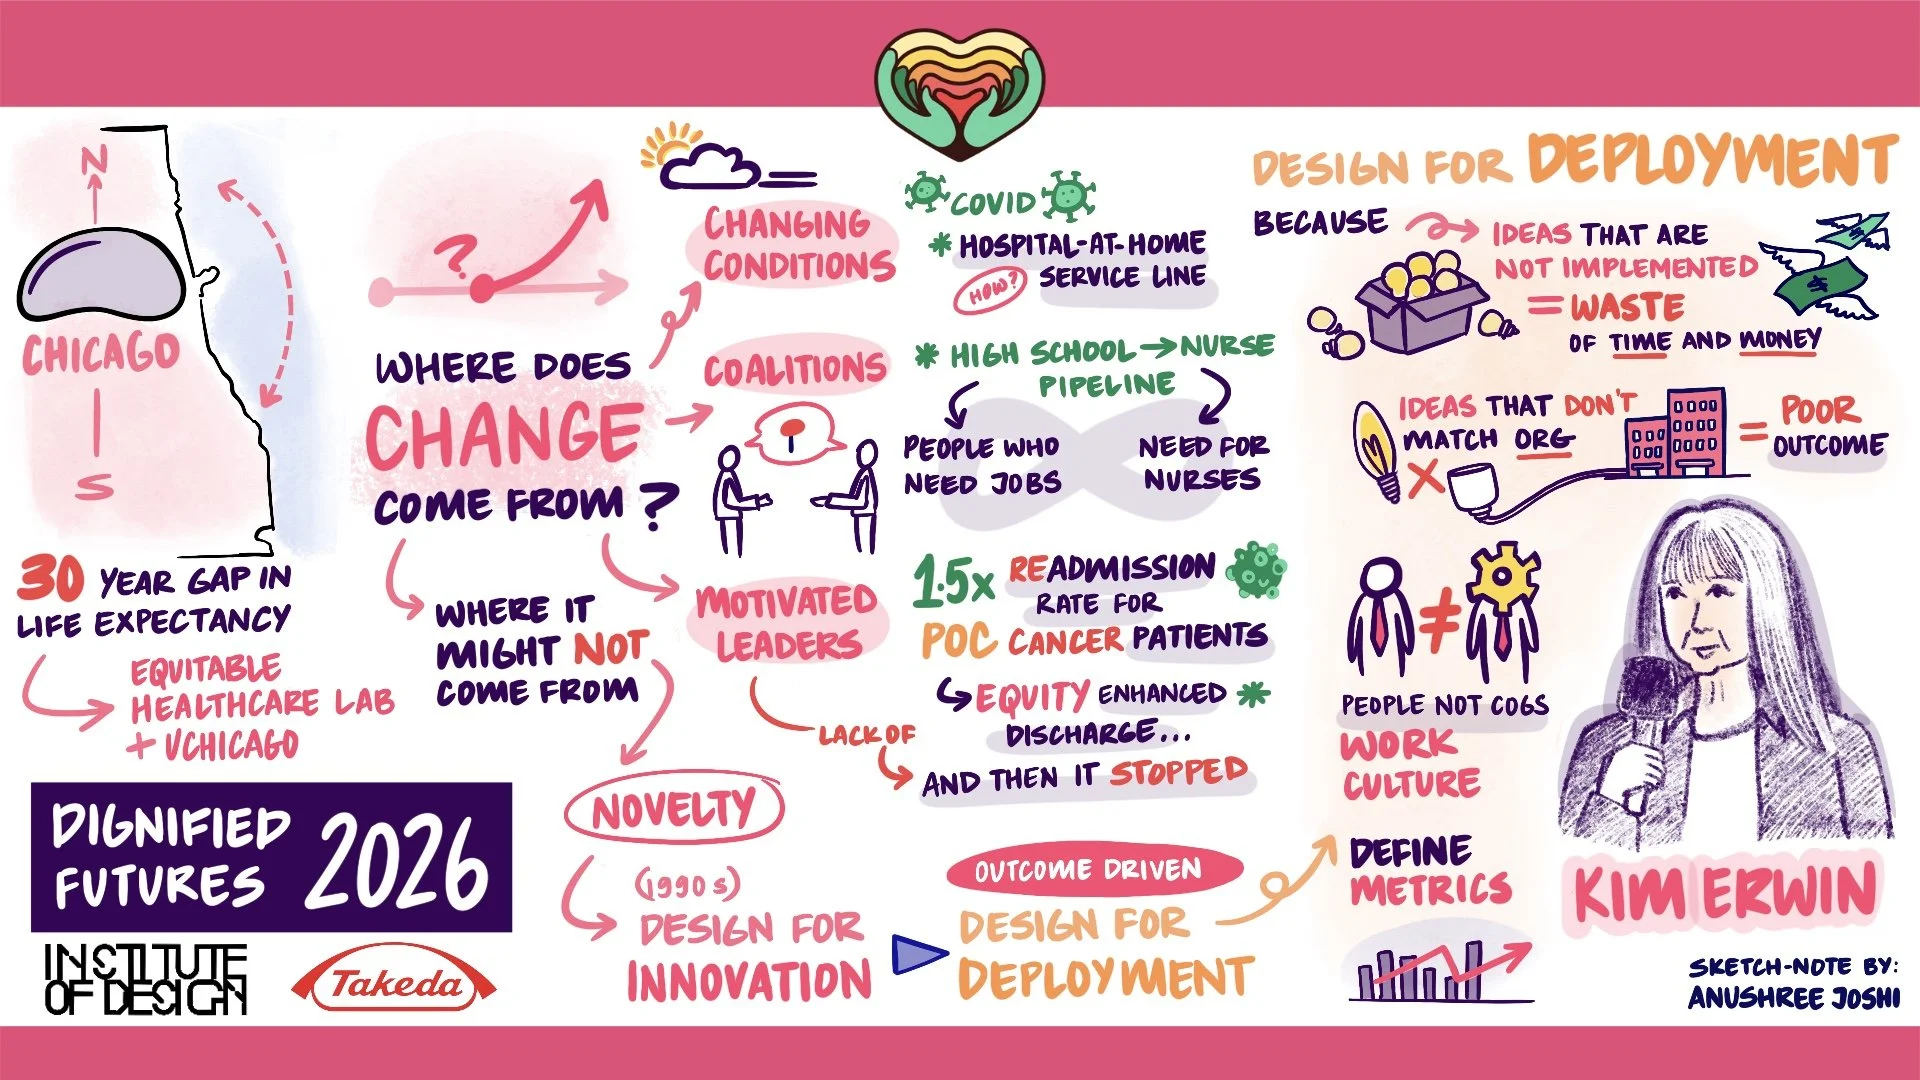 N
CHICAGO
S
30 YEAR GAP IN
LIFE EXPECTANCY
EQUITABLE
HEALTHCARE LAB
+ UCHICAGO
DIGNIFIED
FUTURES
2026
INSTITUTE
OF DESIGN
Takeda
?
WHERE DOES
CHANGE
COME FROM?
CHANGING
CONDITIONS
COALITIONS
MOTIVATED
LEADERS
WHERE IT
MIGHT NOT
COME FROM
NOVELTY
(1990s)
DESIGN FOR
INNOVATION
COVID
* HOSPITAL-AT-HOME
SERVICE LINE
HOW?
* HIGH SCHOOL → NURSE
PIPELINE
PEOPLE WHO
NEED JOBS
NEED FOR
NURSES
1.5x READMISSION
RATE FOR
POC CANCER PATIENTS
EQUITY ENHANCED *
DISCHARGE...
LACK OF
AND THEN IT STOPPED
OUTCOME DRIVEN
DESIGN FOR
DEPLOYMENT
DESIGN FOR DEPLOYMENT
BECAUSE
IDEAS THAT ARE
NOT IMPLEMENTED
= WASTE
OF TIME AND MONEY
$
$
IDEAS THAT DON'T
MATCH ORG
X
= POOR
OUTCOME
≠
PEOPLE NOT COGS
WORK
CULTURE
DEFINE
METRICS
KIM ERWIN
SKETCH-NOTE BY:
ANUSHREE JOSHI